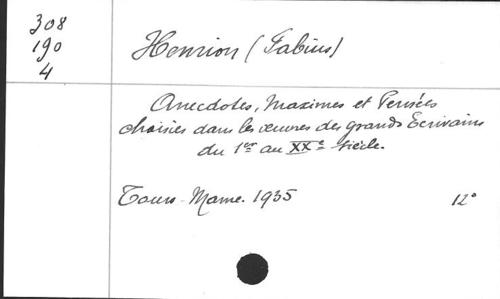 308
190
4
Henrion (Fabius)
Anecdotes, Maximes et Pensées
choisies dans les œuvres des grands Ecrivains
du 1er au XXe siècle.
Tours - Mame. 1935 12°